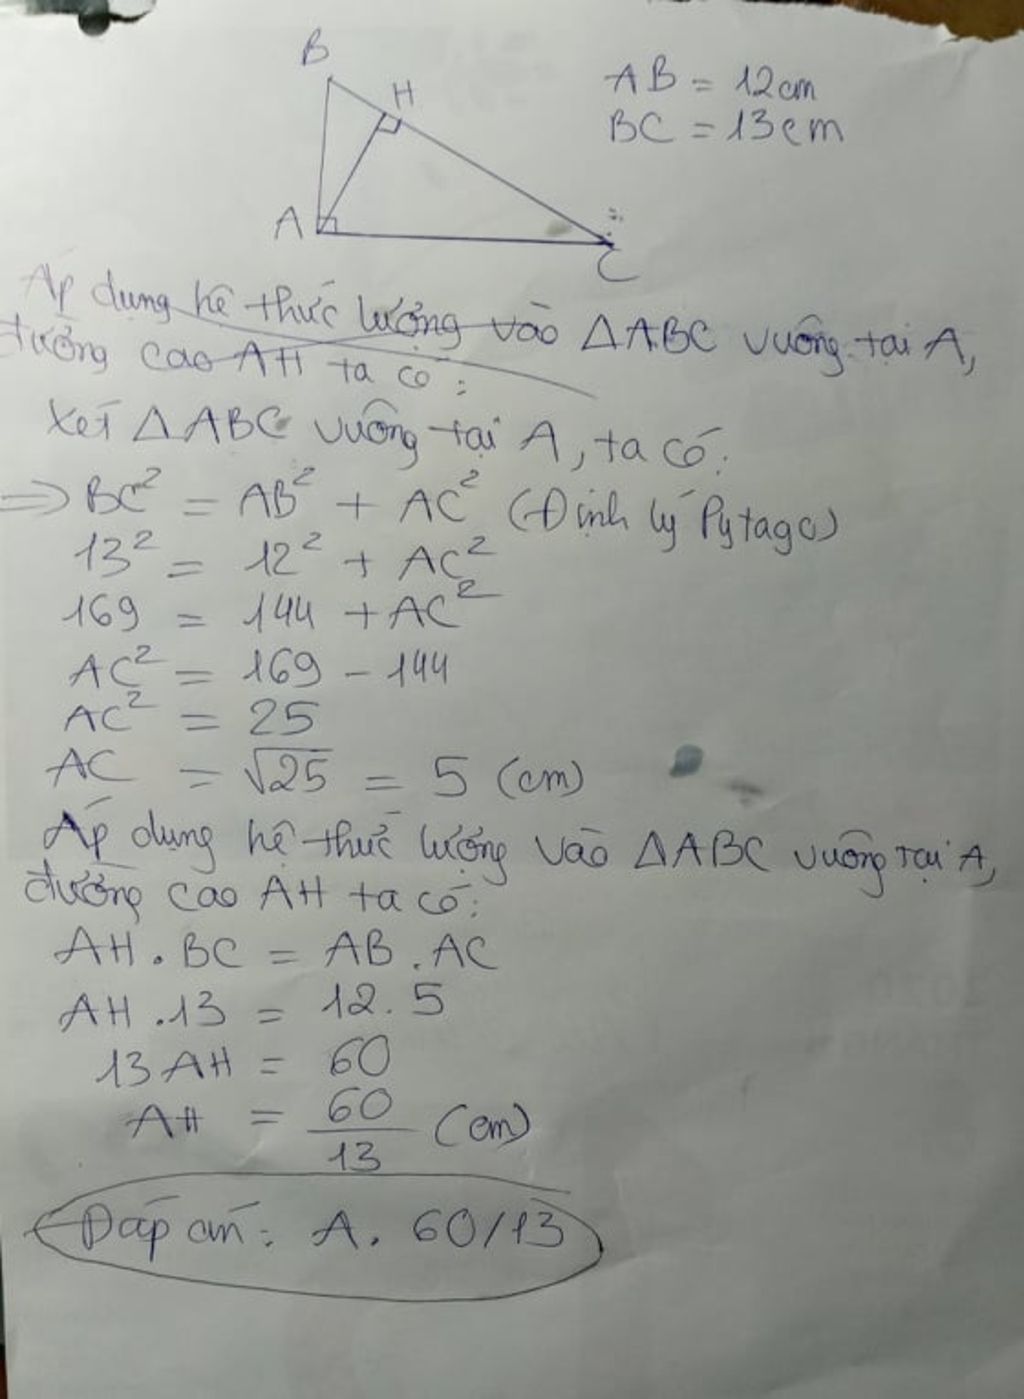 B
H
AB = 12cm
BC = 13cm
A
C
Áp dụng hệ thức lượng vào △ABC vuông tại A,
đường cao AH ta có :
Xét △ABC vuông tại A, ta có:
=> BC² = AB² + AC² (Định lý Pytago)
13² = 12² + AC²
169 = 144 + AC²
AC² = 169 - 144
AC² = 25
AC = √25 = 5 (cm)
Áp dụng hệ thức lượng vào △ABC vuông tại A,
đường cao AH ta có:
AH . BC = AB . AC
AH . 13 = 12 . 5
13 AH = 60
AH = 60/13 (cm)
Đáp án: A. 60/13